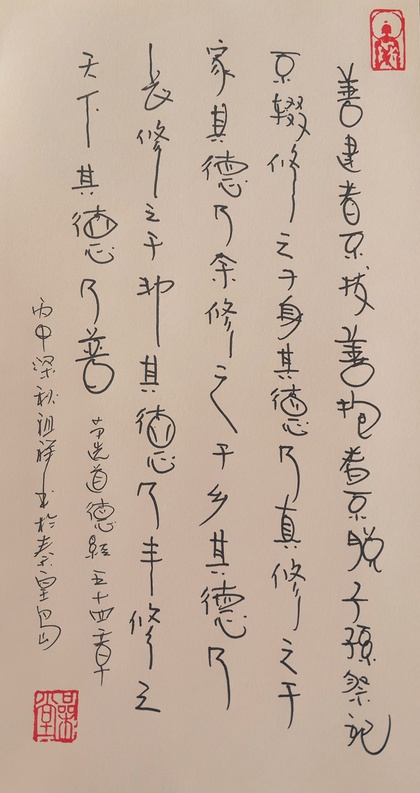 善建者不拔善抱者不脱子孫祭祀
不辍修之于身其德乃真修之于
家其德乃余修之于乡其德乃
长修之于邦其德乃丰修之
天下其德乃普
节选道德经五十四章
丙申深秋祖祥书于秦皇岛